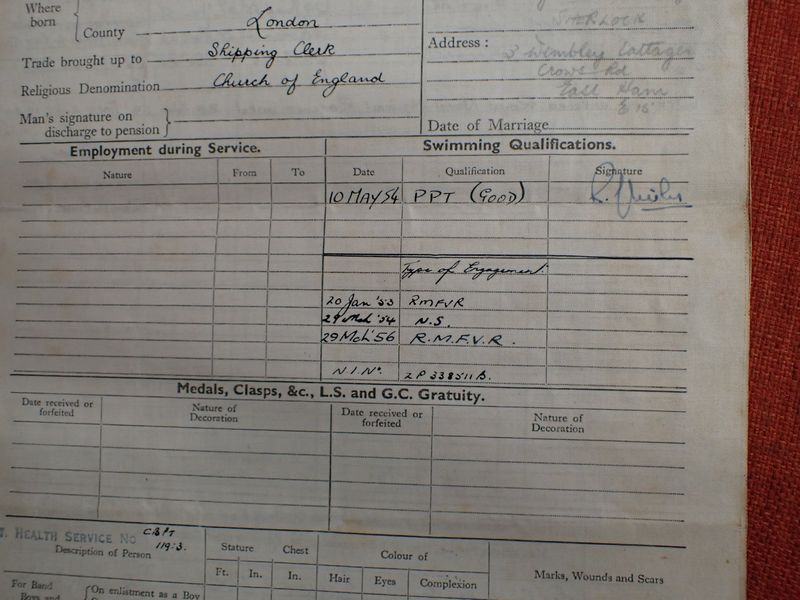 Where born { County London
SHERLOCK
Address : 3 Wembley Cottages
Trade brought up to Shipping Clerk
Crows Rd
Religious Denomination Church of England
East Ham
E 15
Man's signature on discharge to pension }
Date of Marriage
Employment during Service. Swimming Qualifications.
Nature From To Date Qualification Signature
10 MAY 54 PPT (GOOD)
Type of Engagement
20 Jan '53 RMFVR
29 Mch '54 N.S.
29 Mch '56 R.M.F.V.R.
N.I.No. ZP338511B.
Medals, Clasps, &c., L.S. and G.C. Gratuity.
Date received or forfeited Nature of Decoration Date received or forfeited Nature of Decoration
T. HEALTH SERVICE NO CBPT
119:3.
Description of Person Stature Chest Colour of Marks, Wounds and Scars
Ft. In. In. Hair Eyes Complexion
For Band Boys and {On enlistment as a Boy